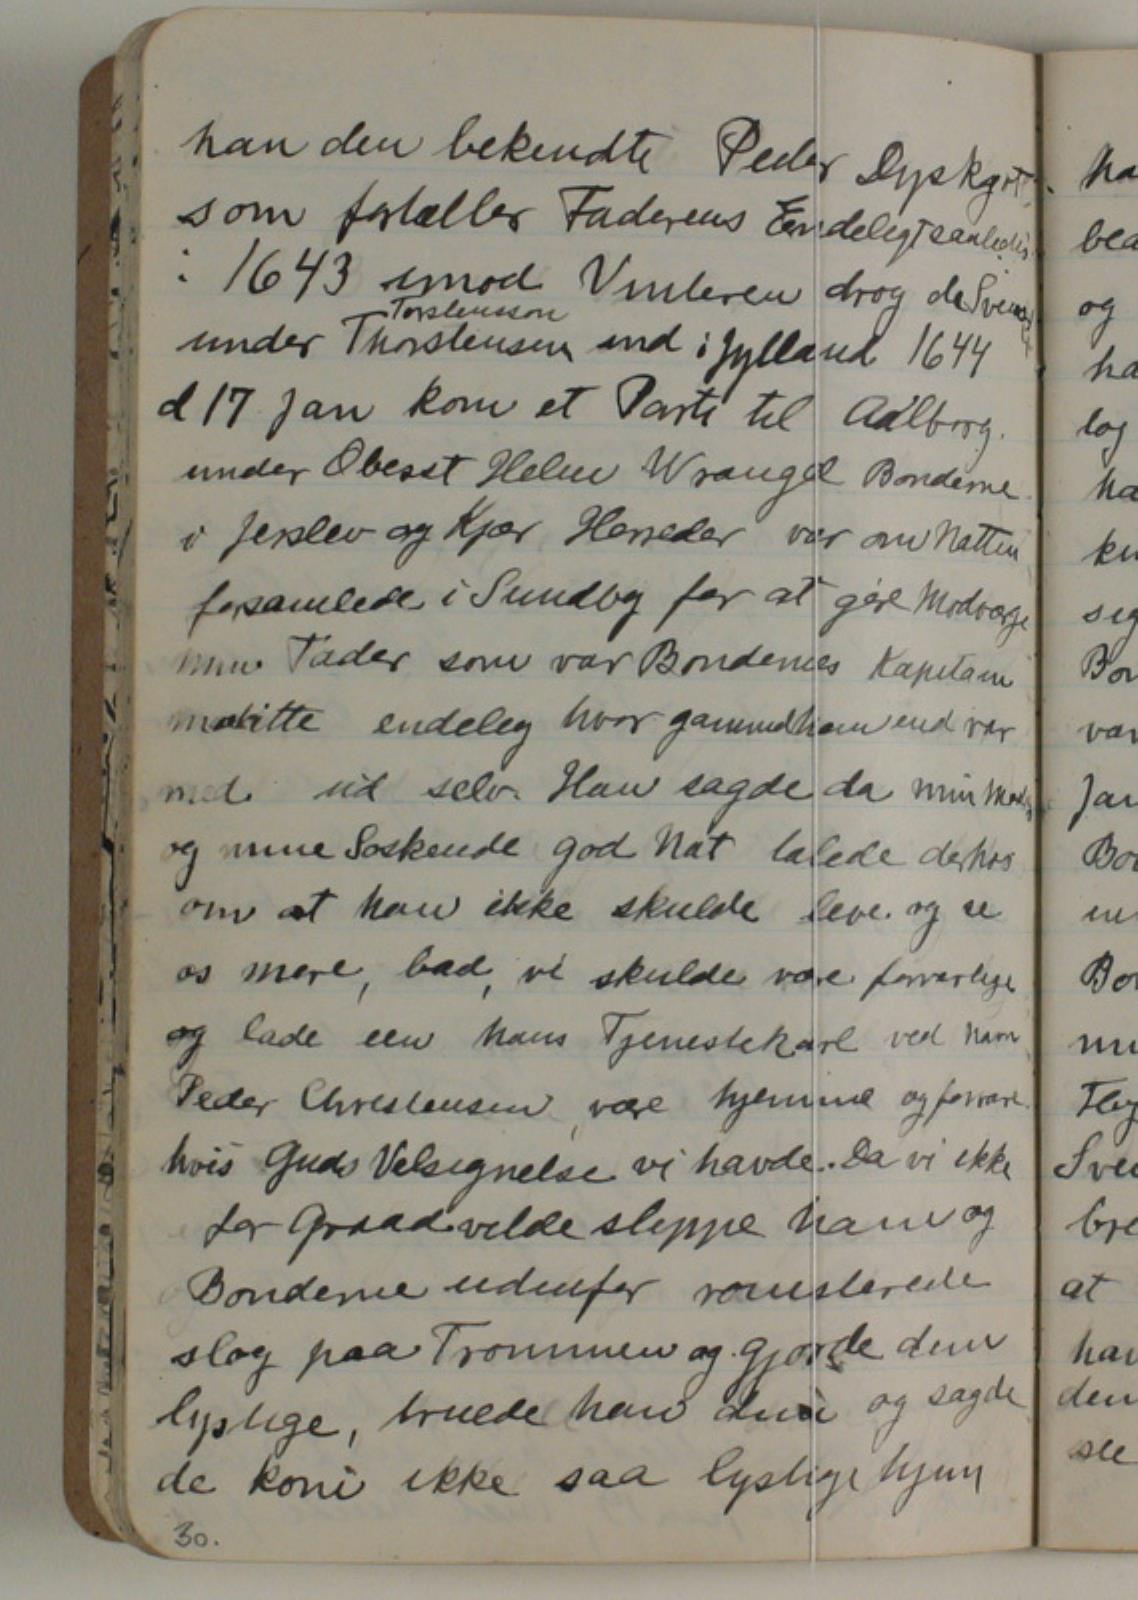 han den bekendte Peder Dyskjøt
som fortæller Faderens Endeligt saaledes
: 1643 imod Vinteren drog de Svenske
Torstensson
under Thorstensen ind i Jylland 1644
d 17 Jan kom et Parti til Aalborg.
under Obesst Helm Wrangel Bønderne
i Jerslev og Kjær Herreder var om Natten
forsamlede i Sundby for at gøre Modværge
min Fader som var Bøndernes Kapitain
maatte endeleg hvor gammel han end var
med ud selv. Han sagde da min Moder
og mine Søskende god Nat talede derhos
om at han ikke skulde leve og se
os mere, bad, vi skulde være forvarlige
og lade een hans Tjenestekarl ved Navn
Peder Christensen, være hjemme og forvare
hvis Guds Velsignelse vi havde. Da vi ikke
for Graad vilde slippe ham og
Bønderne udenfor romsterede
slog paa Trommen og gjorde dem
lystige, truede han dem og sagde
de kom ikke saa lystige hjem
30.
ha
og
ha
log
ha
seg
Bon
var
Jan
at
hav
den